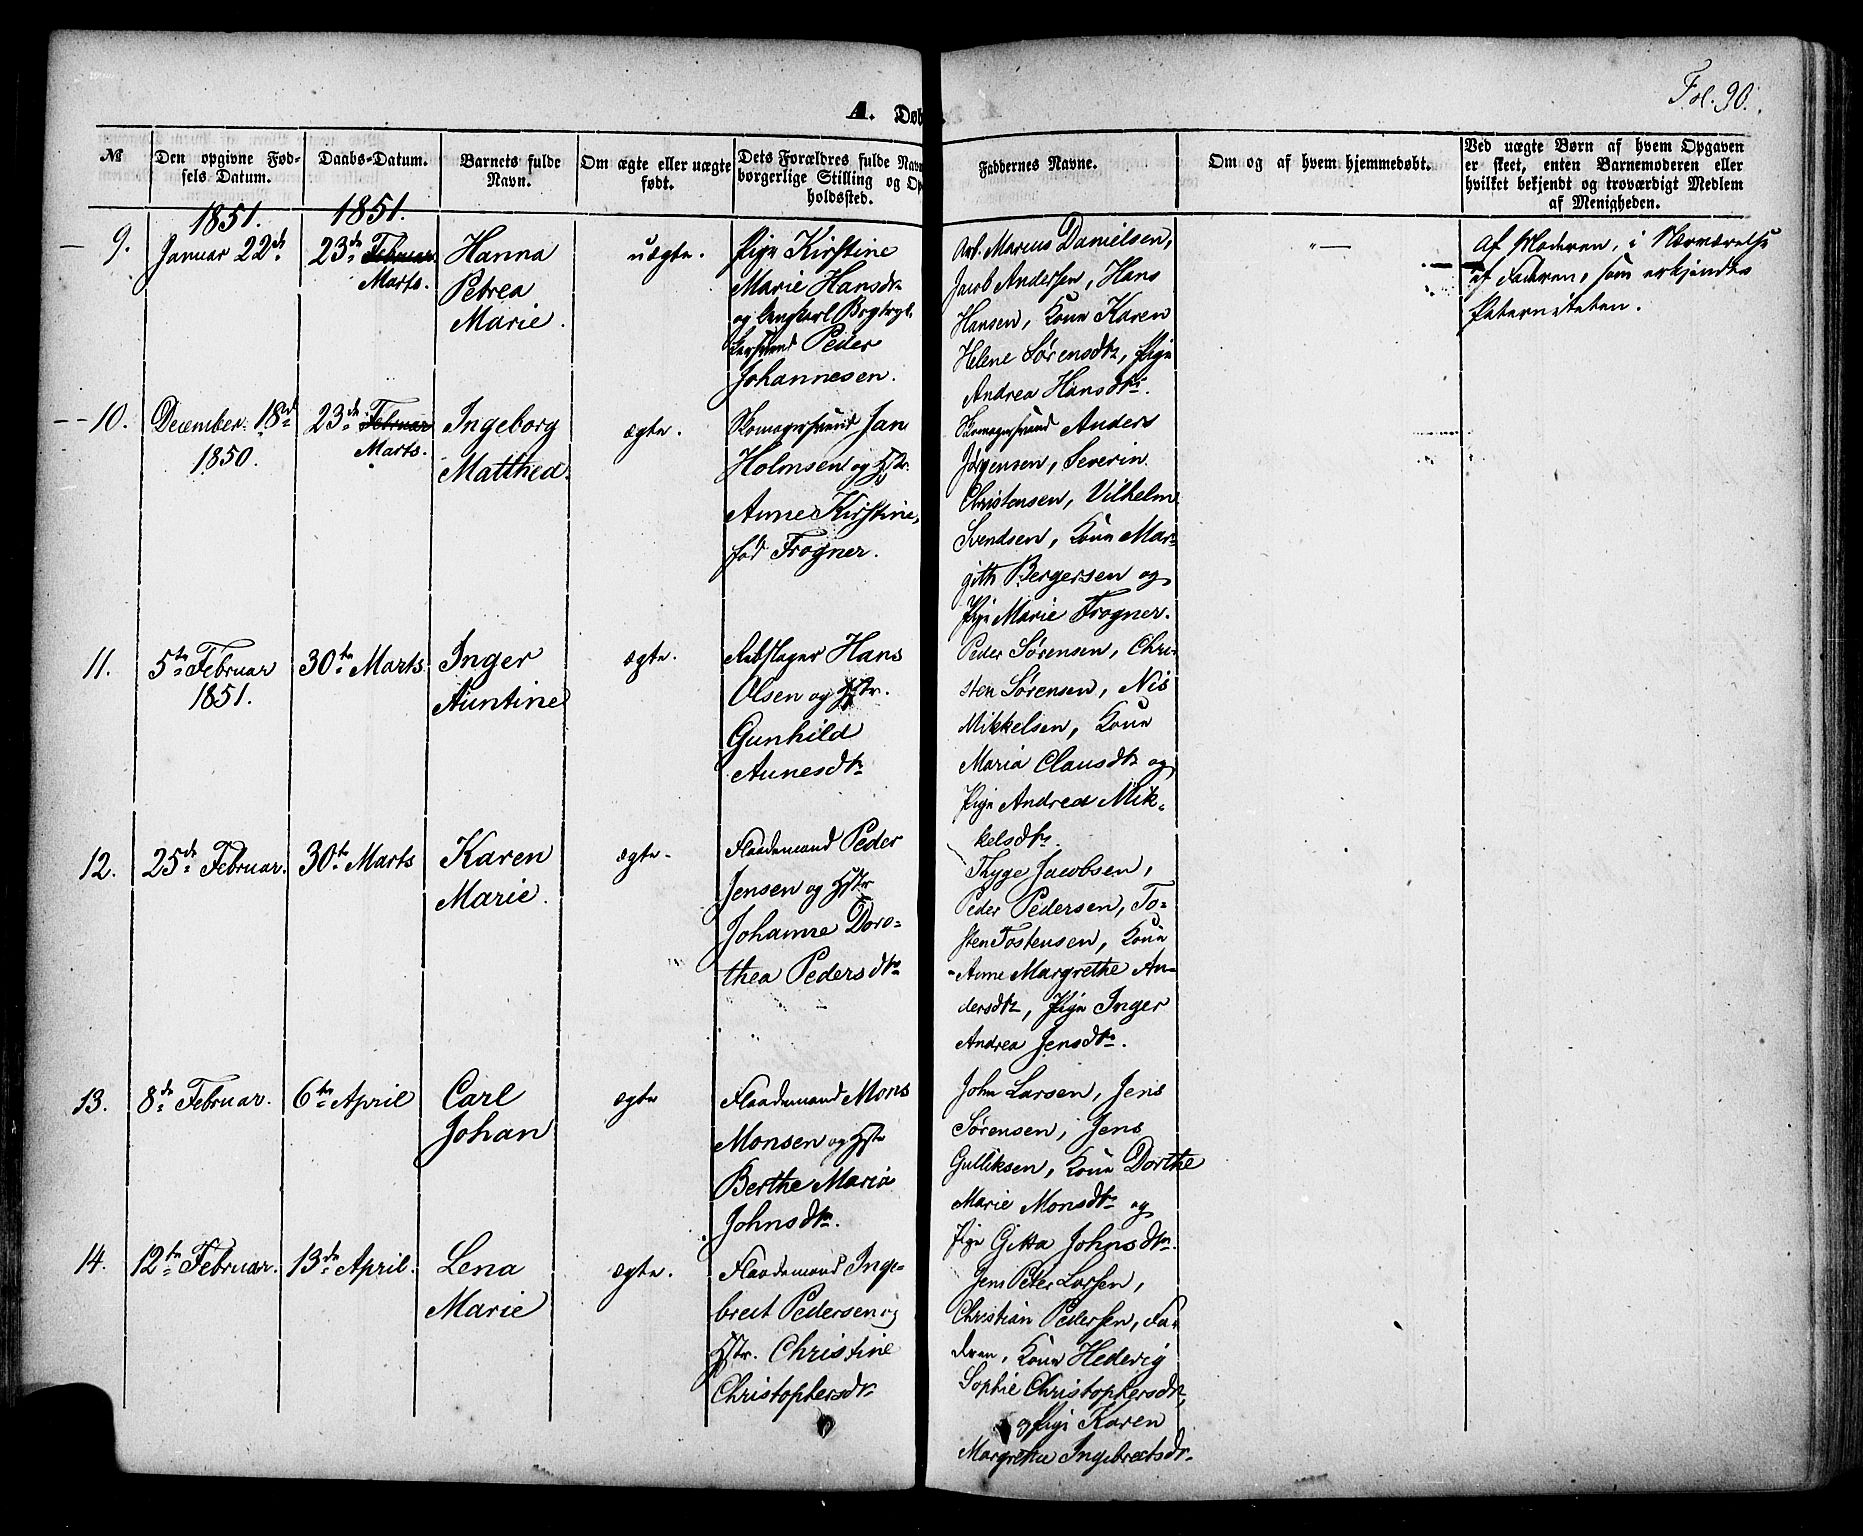 Fol. 90.
A. Døb
№
Den opgivne Fød-
sels Datum.
Daabs-Datum.
Barnets fulde
Navn.
Om ægte eller uægte
født.
Dets Forældres fulde Navn
borgerlige Stilling og Op
holdssted.
Faddernes Navne.
Om og af hvem hjemmedøbt.
Ved uægte Børn af hvem Opgaven
er skeet, enten Barnemoderen eller
hvilket bekjendt og troværdigt Medlem
af Menigheden.
1851.
1851.
9.
Januar 22de
23de Februar
Marts.
Hanna
Petrea
Marie.
uægte.
Pige Kirstine
Marie Hansdtr
og Ungkarl Bogtryk
kersvend Peder
Johannesen.
Arb. Marcus Danielsen,
Jacob Andersen, Hans
Hansen, Kone Karen
Helene Sørensdtr, Pige
Andrea Hansdtr.
Af Moderen, i Nærværelse
af Faderen, som erkjendte
Paterniteten.
10.
December 18de
1850.
23de Februar
Marts.
Ingeborg
Matthea.
ægte.
Skomagersvend Jan
Holmsen og Hstr.
Anne Kirstine,
fød Frogner.
Skomagersvend Anders
Jørgensen, Severin
Christensen, Vilhelm
Svendsen, Kone Mar-
gith Bergersen og
Pige Marie Frogner.
11.
5te Februar
1851.
30te Marts.
Inger
Auntine
ægte.
Rebslager Hans
Olsen og Hstr.
Gunhild
Aunesdtr
Peder Sørensen, Chri-
sten Sørensen, Nis
Mikkelsen, Kone
Maria Clausdtr og
Pige Andrea Mik-
kelsdtr.
12.
25de Februar.
30te Marts
Karen
Marie.
ægte.
Flaademand Peder
Jensen og Hstr
Johanne Doro-
thea Pedersdtr
Thyge Jacobsen,
Peder Pedersen, To-
sten Tostensen, Kone
Anne Margrethe An-
dersdtr, Pige Inger
Andrea Jensdtr.
13.
8de Februar.
6te April
Carl
Johan
ægte
Flaademand Mons
Monsen og Hstr
Berthe Maria
Johnsdtr.
John Larsen, Jens
Sørensen, Jens
Gulliksen, Kone Dorthe
Marie Monsdtr og
Pige Gitta Johnsdtr.
14.
12te Februar.
13de April.
Lena
Marie
ægte.
Flaademand Inge-
bret Pedersen og
Hstr. Christine
Christophersdtr
Jens Peter Larsen,
Christian Pedersen, Fa-
deren, Kone Hedevig
Sophie Christophersdtr,
og Pige Karen
Margrethe Ingebretsdtr.